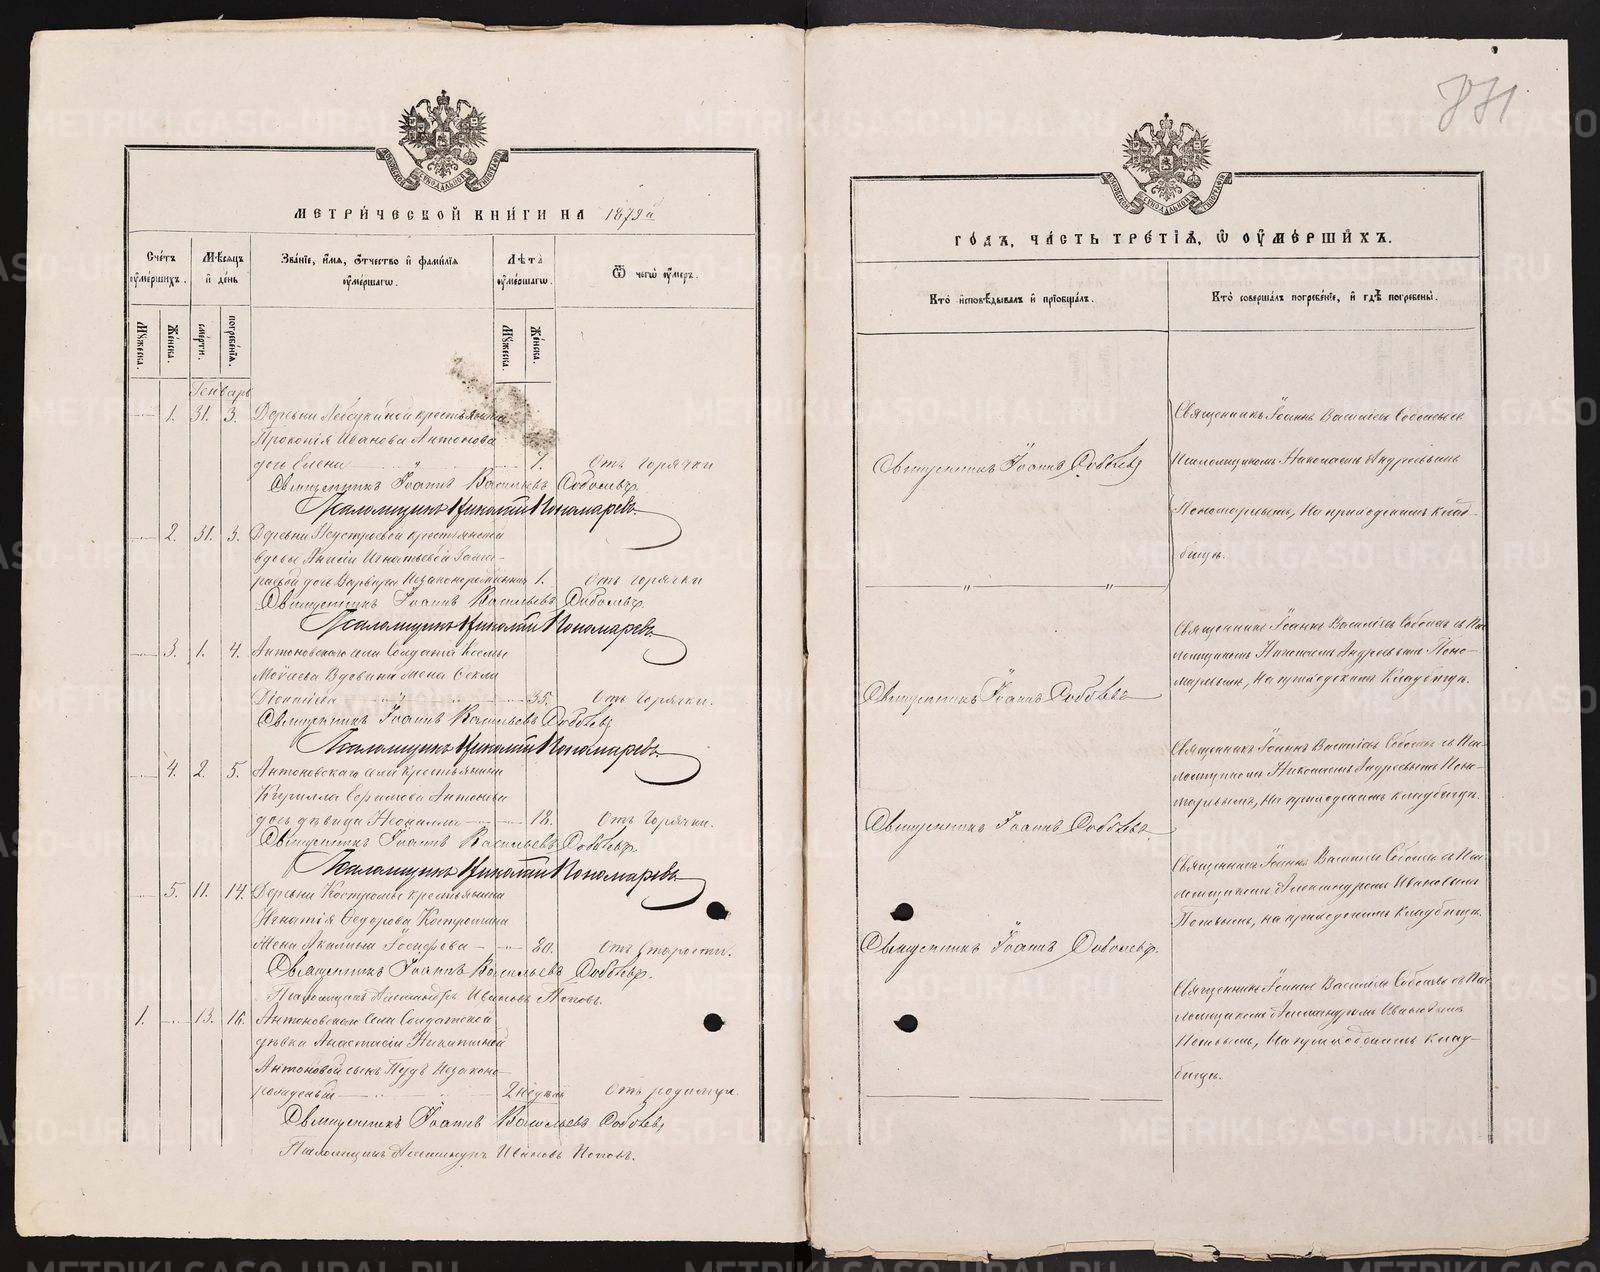 МЕТРИ́ЧЕСКОЙ КНИ́ГИ НА 1879й
Сче́тъ оу҆ме́ршихъ.
Мѣ́сяцъ и҆ де́нь
Зва́нїе, и҆́мя, ѻ҆́тчество и҆ фами́лїя оу҆ме́ршагѡ.
Лѣ́та оу҆ме́ршагѡ.
Ѿ чегѡ̀ оу҆́меръ.
Мꙋ́жеска.
Же́нска.
сме́рти.
погребе́нїя.
Мꙋ́жеска.
Же́нска.
Генварь
1. 31. 3. Деревни крестьянина
Прокопія Иванова Антонова
дочь Елена 1. Отъ горячки
Священникъ Іоаннъ Васильевъ Соболевъ
Псаломщикъ Николай Пономаревъ
2. 31. 3. Деревни крестьянской
вдовы Анисіи Игнатьевой
дочь Варвара незаконорожденная 1. Отъ горячки
Священникъ Іоаннъ Васильевъ Соболевъ
Псаломщикъ Николай Пономаревъ
3. 1. 4. Антоновскаго села Солдата Космы
Моисеева Вдовина жена Ѳекла
35. Отъ горячки.
Священникъ Іоаннъ Васильевъ Соболевъ
Псаломщикъ Николай Пономаревъ
4. 2. 5. Антоновскаго села крестьянина
Кирилла Ефимова Антонова
дочь дѣвица Неонилла 18. Отъ горячки.
Священникъ Іоаннъ Васильевъ Соболевъ
Псаломщикъ Николай Пономаревъ
5. 11. 14. Деревни Костромы крестьянина
Игнатія Ѳедорова Костромина
жена Акилина Іосифова 80. Отъ старости.
Священникъ Іоаннъ Васильевъ Соболевъ.
Псаломщикъ Александръ Ивановъ Поповъ.
1. 13. 16. Антоновскаго Села Солдатской
дѣвки Анастасіи Никитиной
Антоновой сынъ Пудъ незаконо-
рожденый 2 недѣль Отъ родимца.
Священникъ Іоаннъ Васильевъ Соболевъ
Псаломщикъ Александръ Ивановъ Поповъ.
871
ГО́ДЪ, ЧА́СТЬ ТРЕ́ТІѦ, Ѽ ОУ҆МЕ́РШИХЪ.
Кто̀ и҆сповѣ́дывалъ и҆ прїобща́лъ.
Кто̀ соверша́лъ погребе́нїе, и҆ гдѣ̀ погребены̀.
Священникъ Іоаннъ Васильевъ Соболевъ съ
Священникъ Іоаннъ Соболевъ
Псаломщикомъ Николаемъ Андреевымъ
Пономаревымъ, на приходскомъ клад-
бищѣ.
Священникъ Іоаннъ Васильевъ Соболевъ съ Пса-
ломщикомъ Николаемъ Андреевымъ Поно-
маревымъ, на приходскомъ кладбищѣ.
Священникъ Іоаннъ Соболевъ
Священникъ Іоаннъ Васильевъ Соболевъ съ Пса-
ломщикомъ Николаемъ Андреевымъ Поно-
маревымъ, на приходскомъ кладбищѣ.
Священникъ Іоаннъ Соболевъ
Священникъ Іоаннъ Васильевъ Соболевъ съ Пса-
ломщикомъ Александромъ Ивановымъ
Поповымъ, на приходскомъ кладбищѣ.
Священникъ Іоаннъ Соболевъ.
Священникъ Іоаннъ Васильевъ Соболевъ съ Пса-
ломщикомъ Александромъ Ивановымъ
Поповымъ, на приходскомъ клад-
бищѣ.
METRIKI.GASO-URAL.RU